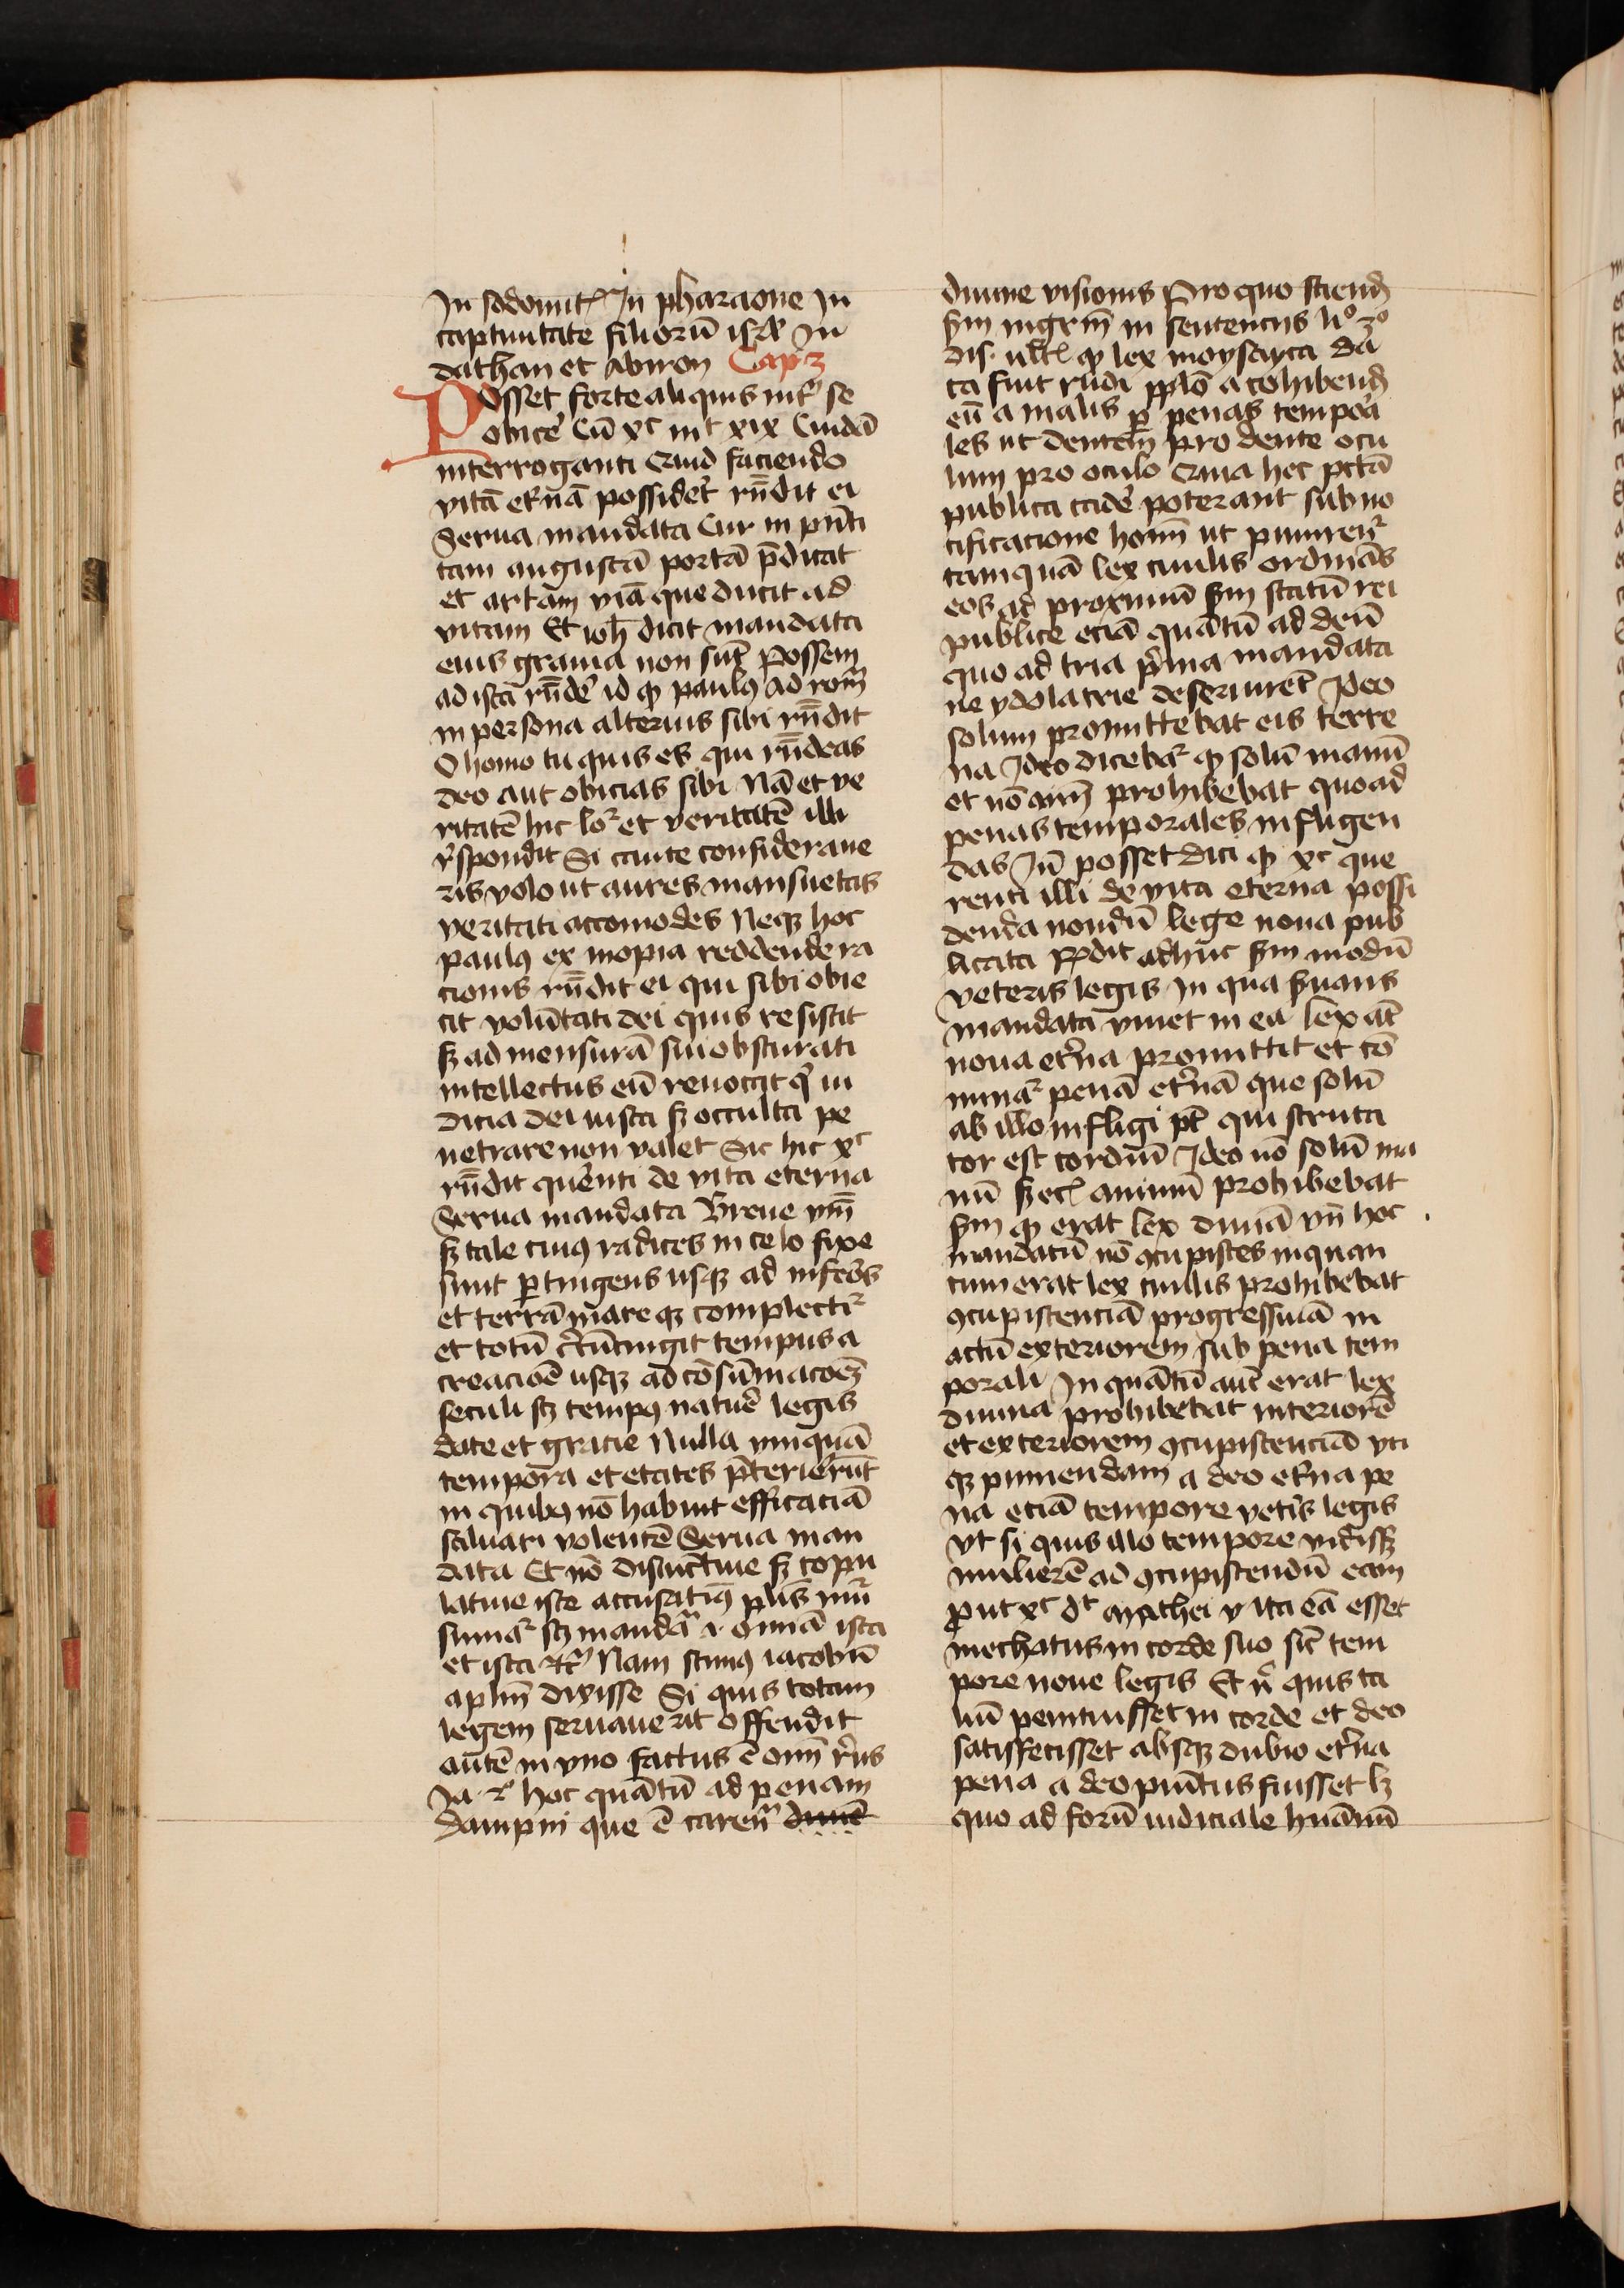 In sodomit̉ In pharaone In
captiuitate filiorū isrl̉ In
dathan et abiron Cap 3
Posset forte aliquis int̉ se
obice͛ Cū xc mt xix Cuidā
interroganti Quid faciendo
vitā et̉nā possidet͛ rn̄dit ei
Serua mandata Cur in pn̄ti
tam angustā portā p̄dicat
et artam viā que ducit ad
vitam Et ioh̄ dicit mandata
eius grauia non sūt Possem
ad ista rn̄de͛ id ꝙ paulꝰ ad rom̄
in persona alterius sibi rn̄dit
O homo tu quis es qui rn̄deas
deo aut obicias sibi Nā et ve
ritatē hic loꝛ̉ et veritatē illi
r̉spondit Si caute consideraue
ris volo ut aures mansuetas
veritati accomodes Neqꝫ hoc
paulꝰ ex inopia reddende ra
cionis rn̄dit ei qui sibi obie
cit volūtati dei quis resistit
sꝫ ad mensurā sui obscurati
intellectus eū reuocat q̉ iu
dicia dei iusta sꝫ occulta pe
netrare non valet Sic hic xc
rn̄dit que͛nti de vita eterna
Serua mandata Breue vm̄
sꝫ tale cuiꝰ radices in celo fixe
sunt ꝑtingens usqꝫ ad infe͛os
et terrā mareqꝫ complectiꝛ̉
et totū tempus a
creacioē usqꝫ ad cōsūmacoēꝫ
seculi scꝫ tempꝰ nature͛ legis
date et gracie Nulla vmquā
tempora et etates p̄terierūt
in quibꝰ nō habuit efficaciā
saluari volentē Serua man
data Et nō disiunctiue sꝫ copu
latiue iste accusatiꝰ plis
sumaꝛ̉ scꝫ mandāt .i. omnia ista
et ista ⁊c̉ Nam scimꝰ iacobum
aplm̄ dixisse Si quis totam
legem seruauerit offendit
autē in vno factus ē omī re͛us
Ia. 2 hoc quātū ad penam
dampni que ē caren̄ diuīe
diuine visionis Pro quo sciend̄
sm̄ mgr̄m in sentencijs li⁰ 3⁰
dis. vlt̉ ꝙ lex moysayca da
ta fuit rudi pplō a cohibend̄
eū a malis ꝑ penas tempora
les ut dentem pro dente ocu
lum pro oculo Quia hec pctā
publica cade͛ poterant sub no
tificacione homī ut punireñ̉
tamquā lex ciuilis ordināẽs
eos ad proximū sm̄ statū rei
publice eciā quātū ad deū
quo ad tria p̉ma mandata
ne ydolatrie deseruirēt Ideo
solum promittebat eis terre
na Ideo dicebaꝛ̉ ꝙ solū manū
et nō aīm prohibebat quo ad
penas temporales infligen
das Iñ posset dici ꝙ xc que
renti illi de vita eterna possi
denda nondū lege noua pub
licata rn̄dit adhuc sm̄ modū
veteris legis In qua suans
mandata viuet in ea lex at̄
noua et̉na promittit et cō
minaꝛ̉ penā et̉nā que solū
ab illo infligi pt̄ qui scruta
tor est cordiū Ideo nō solū ma
nū sꝫ ec̉ animū prohibebat
sm̄ ꝙ erat lex diuīa vn̄ hoc
mandatū nō ꝯcupisces inquan
tum erat lex ciuilis prohibebat
ꝯcupiscenciā progressiuā in
actū exteriorem sub pena tem
porali In quātū aūt erat lex
diuina prohibebat interiorē
et exteriorem ꝯcupiscenciā vti
qꝫ puniendam a deo et̉na pe
na eciā tempore vet̉is legis
vt si quis illo tempore vidissꝫ
mulierē ad ꝯcupiscendū eam
put xc dt mathei v Ita eā esset
mechatus in corde suo sic̄ tem
pore noue legis Et n̉ quis ta
liū penituisset in corde et deo
satisfecisset absqꝫ dubio et̉na
pena a deo pūitus fuisset lꝫ
quo ad forū iudiciale hūanū